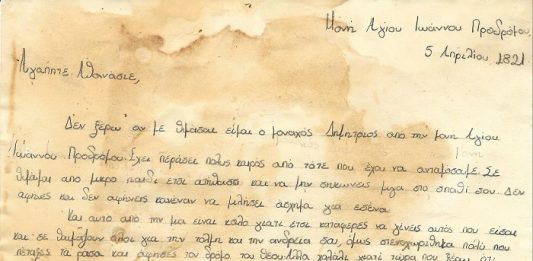 Μονή Αγίου Ιωάννου Προδρόμου,
5 Απριλίου 1821
Αγαπητέ Αθανάσιε,
Δεν ξέρω αν με θυμάσαι είμαι ο μοναχός Δημήτριος από την μονή Αγίου
Ιωάννου Προδρόμου. Έχει περάσει πολύς καιρός από τότε που έχω να ανταμόσαμε. Σε
μονή
θυμάμαι από μικρό παιδί έτσι απίθασο και να μην σηκώνεις μύγα στο σπαθί σου. Δεν
άφηνες και δεν αφήνεις κανέναν να μιλήσει άσχημα για εσένα.
Και αυτό από την μία είναι καλό γιατί έτσι κατάφερες να γίνεις αυτός που είσαι
και σε θαυμάζουν όλοι για την τόλμη και την ανδρεία σου, όμως στεναχωρήθηκα πολύ που
πέταξες τα ράσα και άφησες τον δρόμο του Θεού. Αλλά χαλάλι γιατί τώρα που ξέρω ότι